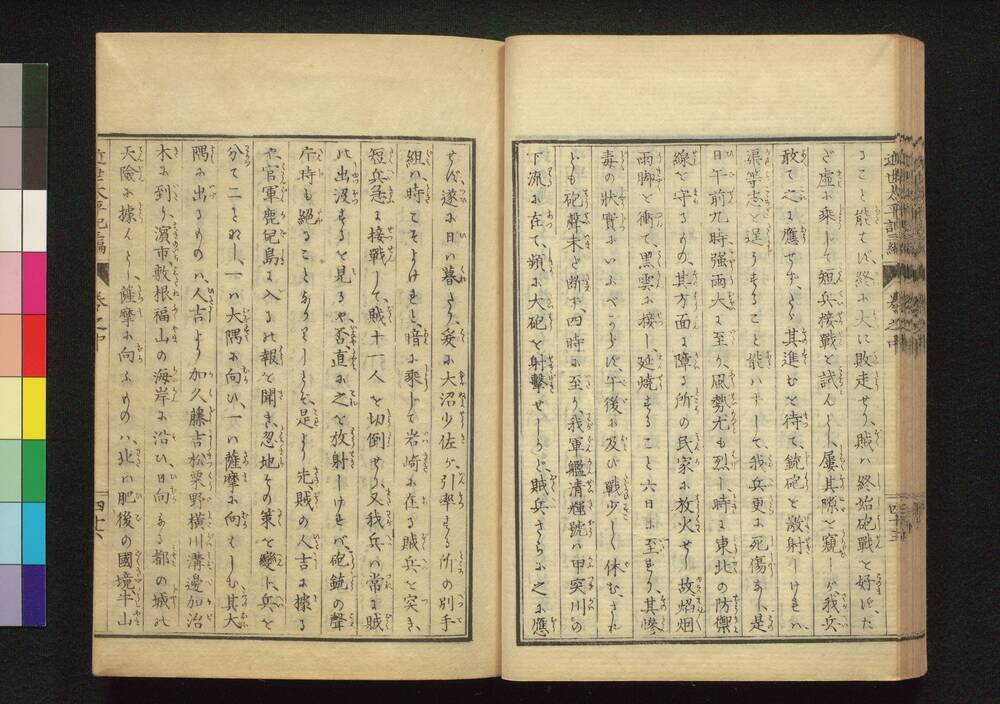 ること能はず、終に大に敗走せり、賊ハ終始砲戰を好まず、た
ざ虚に乗じて短兵接戰を試んとし、屢其隙を窺ーが我兵
敢て之に應せず、其進むを待て、銃砲を散射しけれハ、
渠等志を逞うすること能ハずして、我兵更に死傷なし、是
日午前九時強雨大に至り、風勢尤も烈し、時に東北の防禦
線を守るもの、其方面に障る所の民家に放火せり、故焰烟
雨脚を衝て、黒雲に接し、延焼すること六日に至れり、其惨
毒の狀實にいふべからず、午後に及び戰少しく休む、され
ども砲聲未だ断ず、四時に至り、我軍艦清輝號ハ甲突川の
下流に在て、頻に大砲を射撃せしかど、賊兵さらに之に應
近世太平記二編
巻之中
四十三
せず、遂に日ハ暮たり、爰に大沼少佐が引率する所の別手
組ハ、時こそよけれと、暗に乗じて岩崎に在る賊兵を突き、
短兵急に接戰して、賊十一人を切倒せり、又我兵ハ常に賊
の出没するを見るや否、直に之を放射しけれバ、砲銃の聲
片時も絶ることなかりしとぞ、是より先賊の人吉に據る
や官軍鹿児島に入るの報を聞き、忽地その策を變じ、兵を
分て二となし、一ハ大隅に向ひ、一ハ薩摩に向ハしむ、其大
隅に出るものハ、人吉より加久藤吉松栗野横川溝邊加治
木に到り、濱市敷根福山の海岸に沿ひ、日向なる都の城の
天險に據んとし、薩摩に向ふものハ、北ハ肥後の國境牛山
近世太平記二編
巻之中
四十六